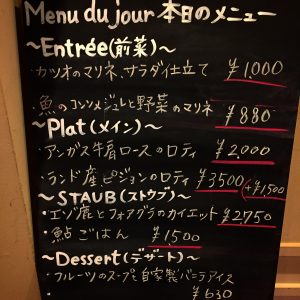 Menu du jour 本日のメニュー
〜Entrée(前菜)〜
・カツオのマリネ、サラダ仕立て ¥1,000
・魚のコンソメジュレと野菜のマリネ ¥880
〜Plat(メイン)〜
・アンガス牛肩ロースのロティ ¥2,000
・ランド産ピジョンのロティ ¥3500
(+¥1,500)
〜STAUB(ストウブ)〜
・エゾ鹿とフォアグラのカイエット ¥2,750
・鮎ごはん ¥1,500
〜Dessert(デザート)〜
・フルーツのスープと自家製バニラアイス
¥630